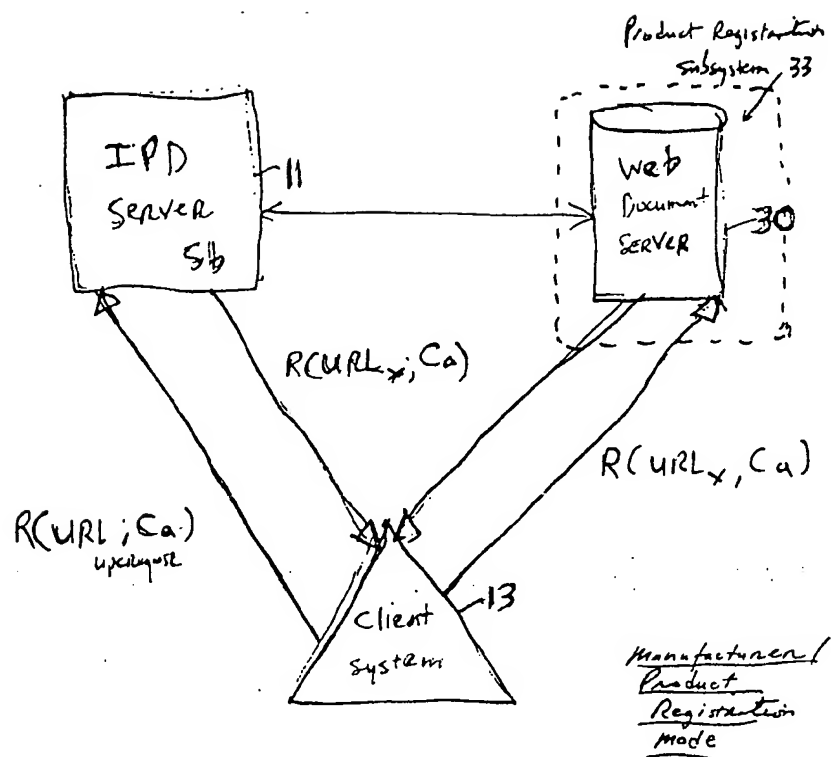 Product Registration
subsystem 33
IPD
Server
Sb
11
Web
Document
Server
30
R(URLx; Ca)
R(URLx, Ca)
R(URL; Ca)
Client
System
13
Manufacturer/
Product
Registration
mode